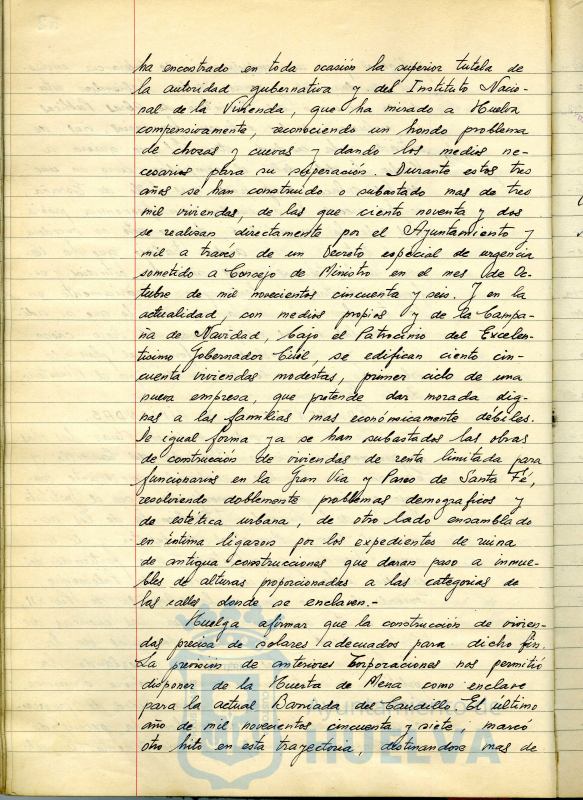 ha encontrado en toda ocasión la superior tutela de
la autoridad gubernativa y del Instituto Nacio-
nal de la Vivienda, que ha mirado a Huelva
compensivamente, reconociendo un hondo problema
de chozas y cuevas y dando los medios ne-
cesarios para su superación. Durante estos tres
años se han construido o subastado mas de tres
mil viviendas, de las que ciento noventa y dos
se realizan directamente por el Ayuntamiento y
mil a través de un Decreto especial de urgencia
sometido a Consejo de Ministro en el mes de Oc-
tubre de mil novecientos cincuenta y seis. Y en la
actualidad, con medios propios y de la Campa-
ña de Navidad, bajo el Patrocinio del Excelen-
tisimo Gobernador Civil, se edifican ciento cin-
cuenta viviendas modestas, primer ciclo de una
nueva empresa, que pretende dar morada dig-
nas a las familias mas económicamente débiles.
De igual forma ya se han subastados las obras
de construcción de viviendas de renta limitada para
funcionarios en la Gran Via y Paseo de Santa Fé,
resolviendo doblemente problemas demograficos y
de estética urbana, de otro lado ensamblado
en íntima ligazon por los expedientes de ruina
de antigua construcciones que daran paso a inmue-
bles de alturas proporcionadas a las categorias de
las calles donde se enclaven.-
Huelga afirmar que la construcción de vivien-
das precisa de solares adecuados para dicho fin.
La prevision de anteriores Corporaciones nos permitió
disponer de la Huerta de Mena como enclave
para la actual Barriada del Caudillo. El ultimo
año de mil novecientos cincuenta y siete, marcó
otro hito en esta trayectoria, destinandose mas de
HUELVA